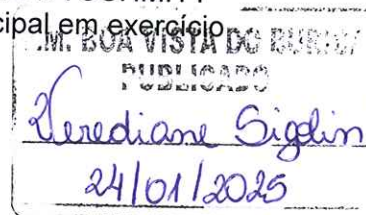 cipal em exercício
P.M. BOA VISTA DO BURICÁ
PUBLICADO
Verediane Sigolin
24/01/2025